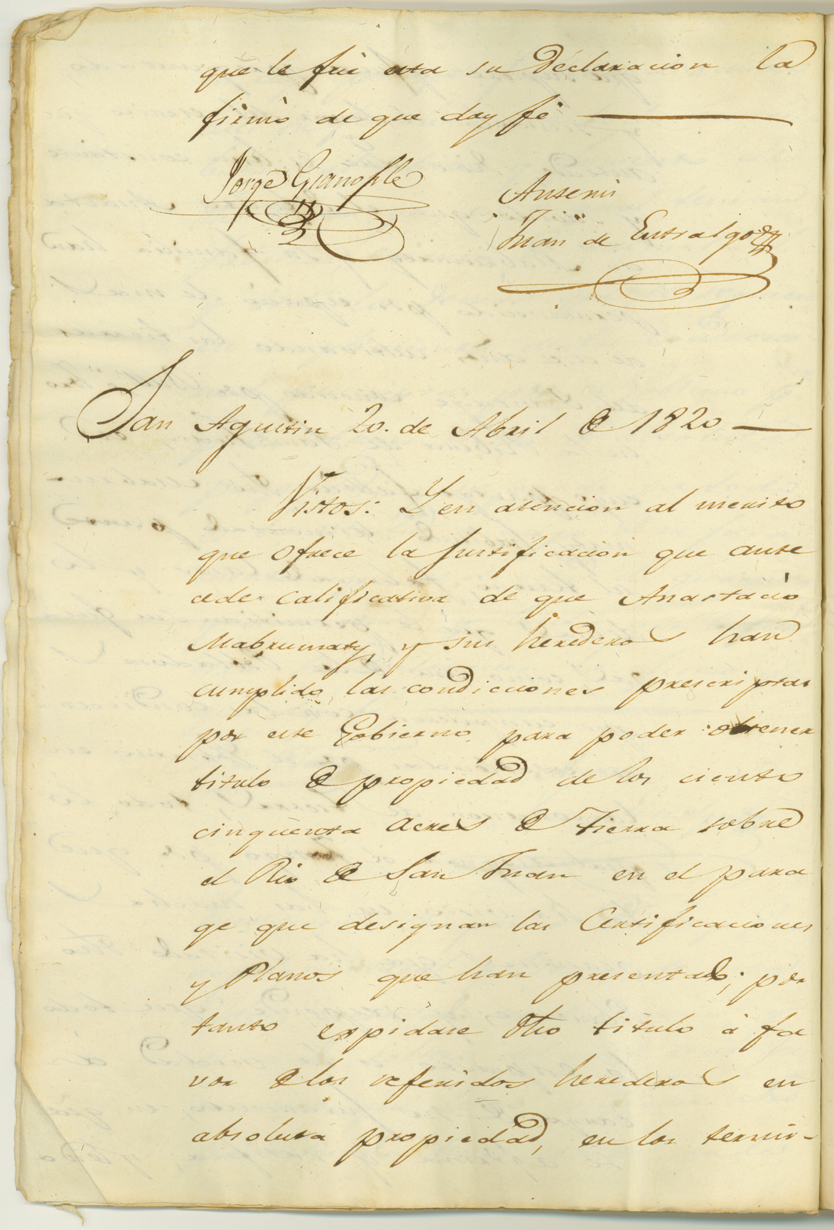 que le fue esta su declaracion la
firmó de que doy fé
Jorge Gianople
Ante mi
Juan de Entralgo
San Agustin 20. de Abril de 1820
Vistos: Y en atencion al merito
que ofrece la justificacion que ante
cede calificativa de que Anastacio
Mabrumaty, y sus herederos han
cumplido las condicciones prescriptas
por este Gobierno para poder obtener
titulo de propiedad de los ciento
cinquenta acres de tierra sobre
el Rio de San Juan en el para
ge que designan las Certificaciones
y Planos que han presentado; por
tanto expidase dho titulo á fa
vor de los referidos herederos en
absoluta propiedad, en los termi-